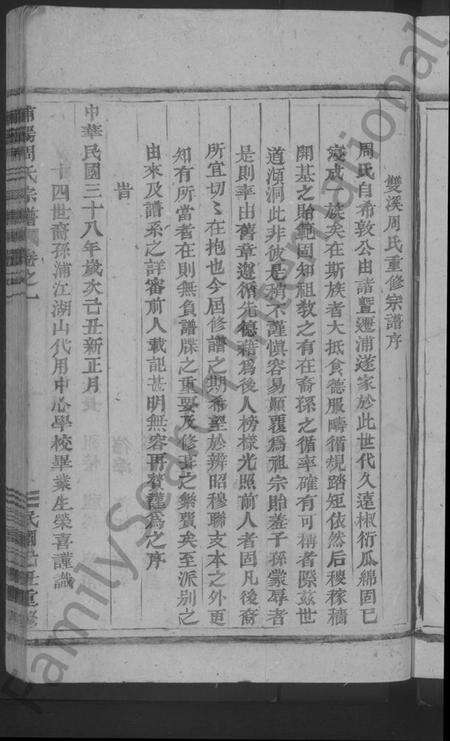 雙溪周氏重修宗譜序
周氏自希敦公由諸暨遷浦遂家於此世代久遠椒衍瓜綿固已
成一族矣在斯族者大抵食德服疇循規踏矩依然后稷稼穡
開基之貽範固知祖敎之有在裔孫之循率確有可稱者際茲世
道澒洞此非彼是稍不謹慎容易顛覆爲祖宗貽羞子孫蒙辱者
是則率由舊章遵循先德藉爲後人榜樣光照前人者固凡後裔
所宜切〻在抱也今屆修譜之期希望於辨昭穆聯支本之外更
知有所當者在則無負譜牒之重要及修
之繁賾矣至派別之
由來及譜系之詳審前人載記甚明無容再贅謹爲之序
旹
中華民國三十八年歲次己丑新正月
十四世裔孫浦江湖山代用中心學校畢業生榮喜謹識
浦陽周氏宗譜
卷之一
民國己丑重修
FamilySearch International